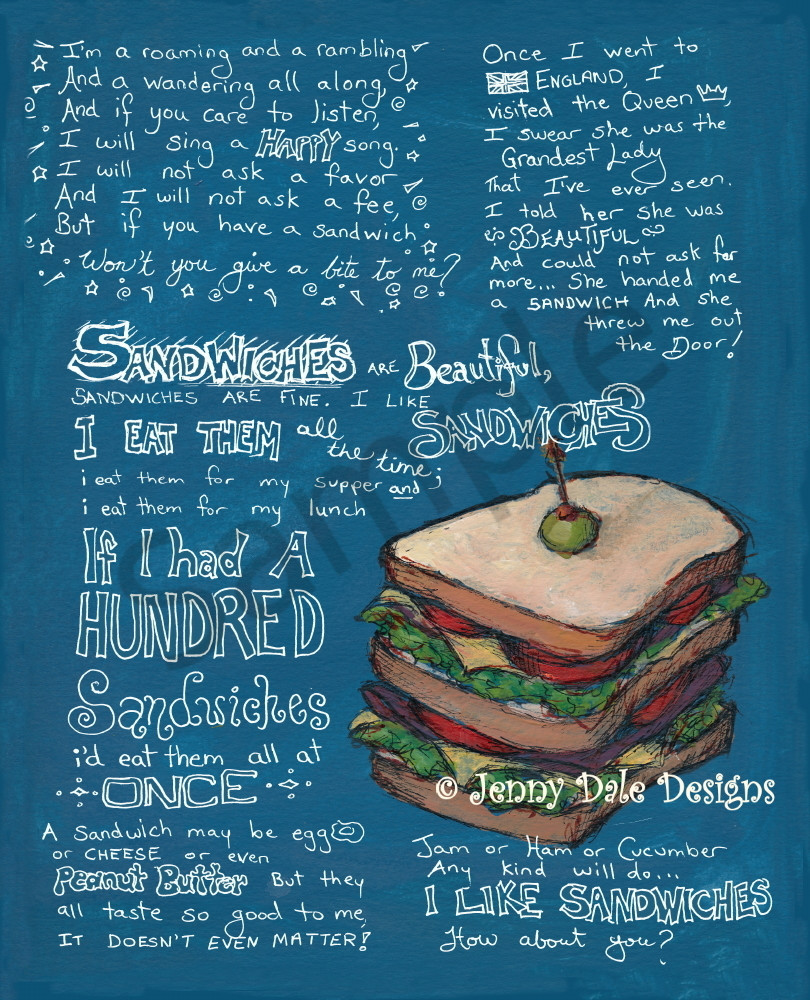 I'm a roaming and a rambling
And a wandering all along,
And if you care to listen,
I will sing a HAPPY song.
I will not ask a favor
And I will not ask a fee,
But if you have a sandwich
Won't you give a bite to me?
Once I went to
ENGLAND, I
visited the Queen,
I swear she was the
Grandest Lady
That I've ever seen.
I told her she was
BEAUTIFUL
And could not ask for
more... She handed me
a SANDWICH And she
threw me out
the Door!
SANDWICHES ARE Beautiful,
SANDWICHES ARE FINE. I LIKE
SANDWICHES
I EAT THEM all
the time;
i eat them for my supper and
i eat them for my lunch
If I had A
HUNDRED
Sandwiches
i'd eat them all at
ONCE
A Sandwich may be egg
or CHEESE or even
Peanut Butter But they
all taste so good to me,
IT DOESN'T EVEN MATTER!
Jam or Ham or Cucumber
Any kind will do...
I LIKE SANDWICHES
How about you?
© Jenny Dale Designs
Sample